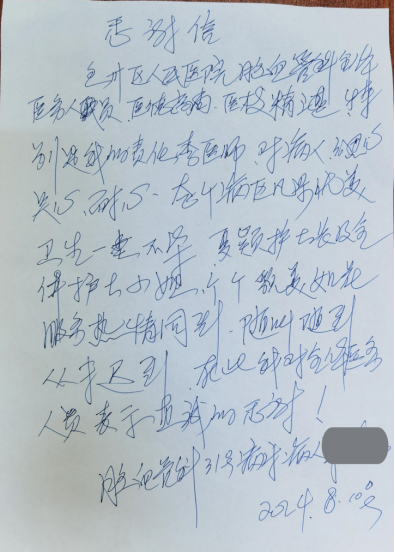 感谢信
区人民医院脑血管科全体
医务人员、医德高尚、医技精湛、特
别是我的责任李医师、对病人细心
耐心、整个病区
卫生一尘不染、夏颖护士长及全
体护士小姐、个个貌美如花
服务热情周到、随叫随到
从未迟到、在此针对全体医务
人员表示真诚的感谢！
脑血管科31号病床、病人
2024.8.10号